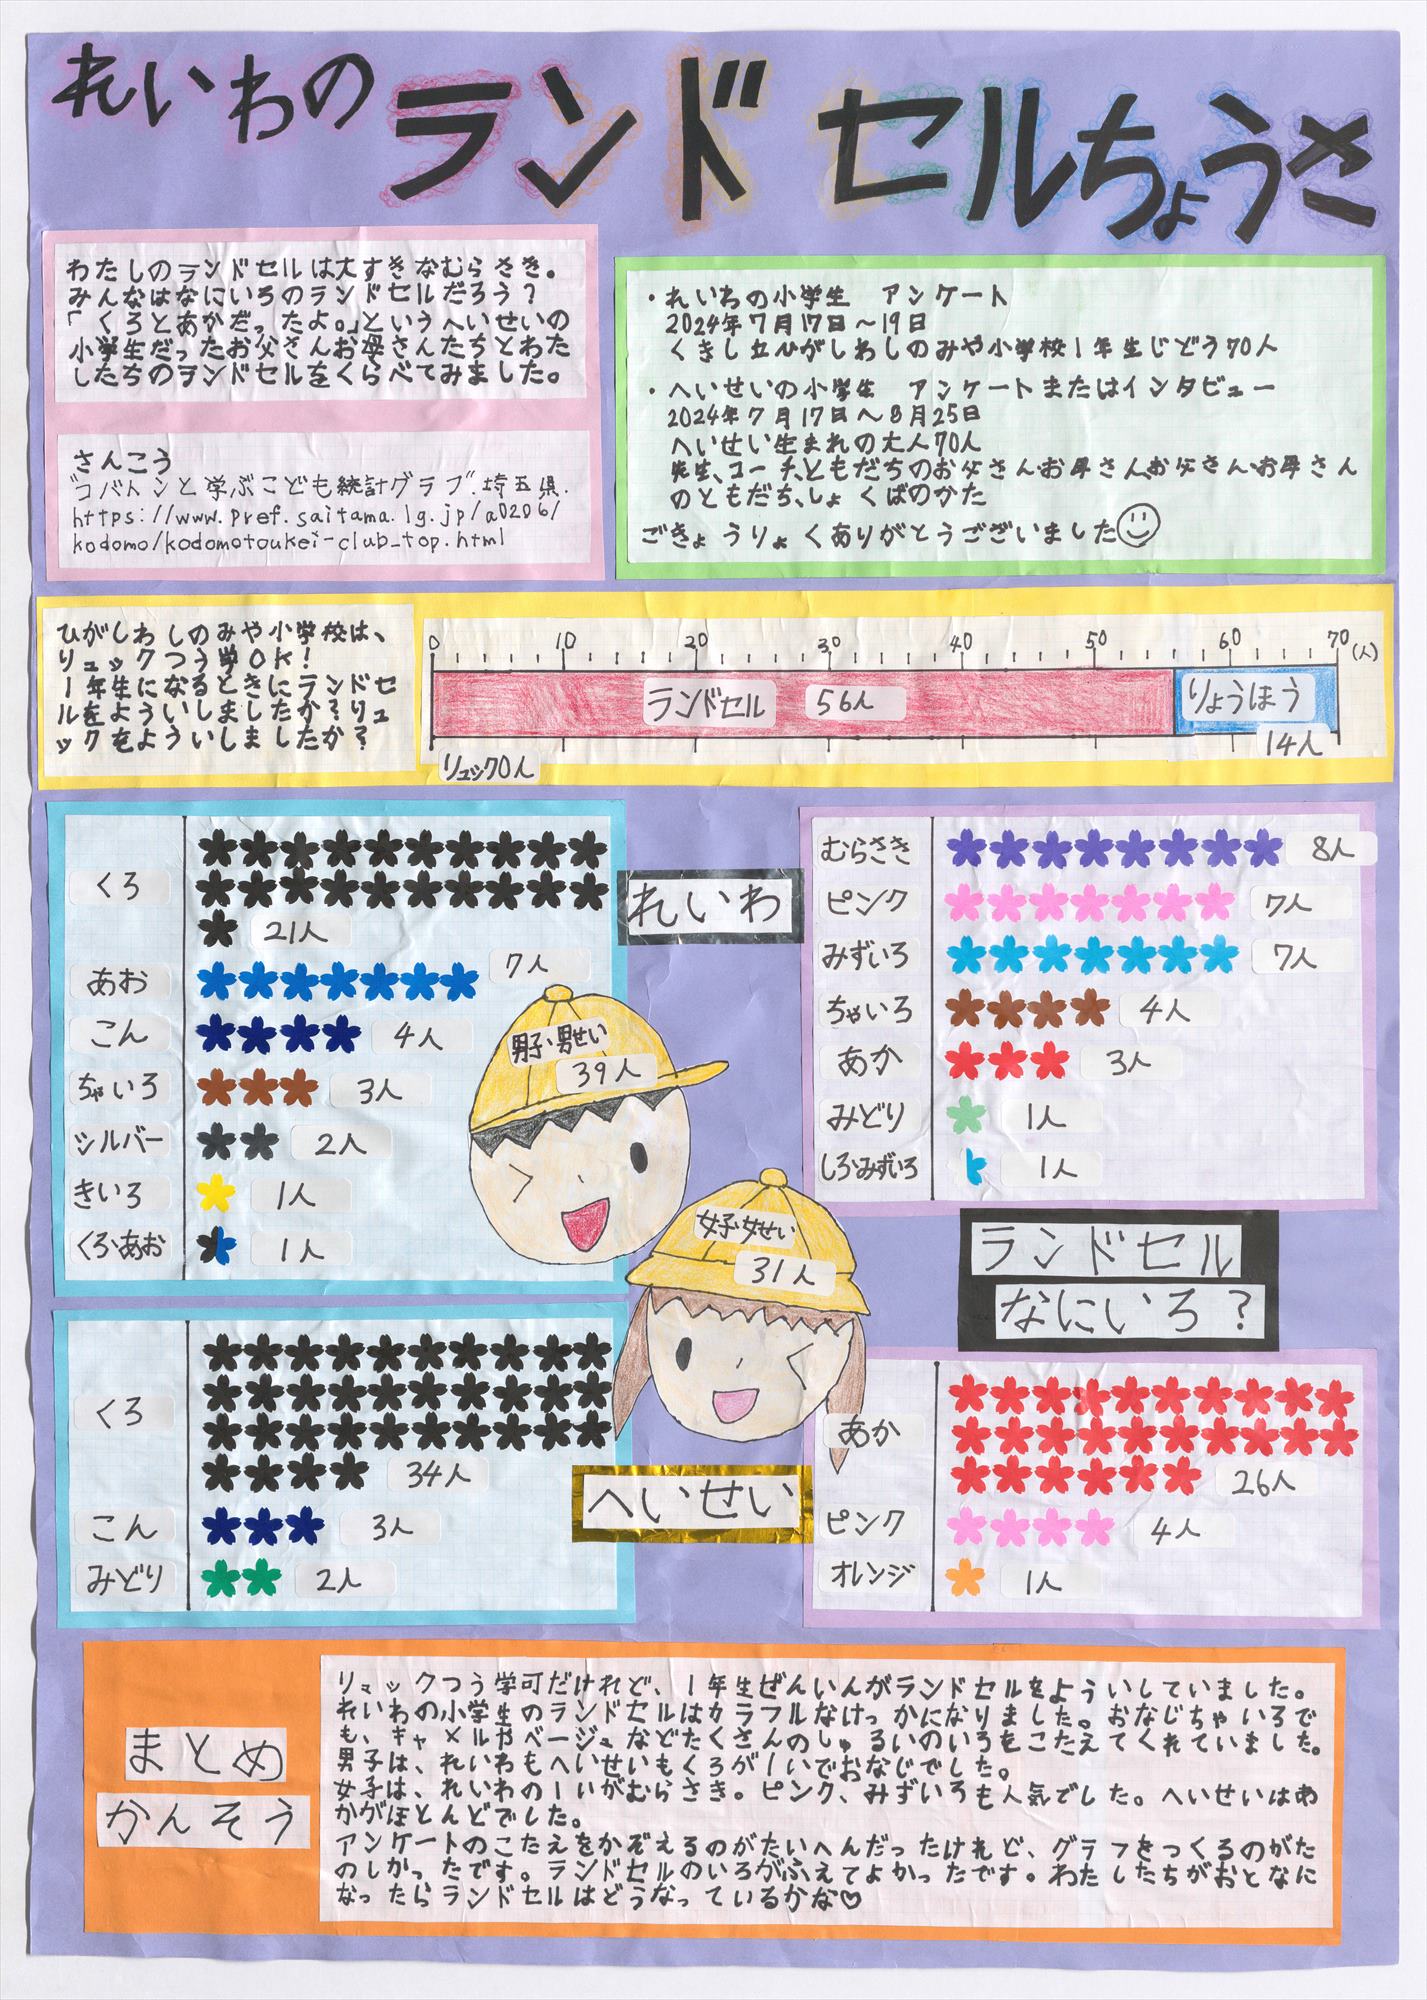 れいわの
ランドセルちょうさ
わたしのランドセルは大すきなむらさき。
みんなはなにいろのランドセルだろう？
「くろとあかだったよ。」というへいせいの
小学生だったお父さんお母さんたちとわた
したちのランドセルをくらべてみました。
さんこう
"コバトンと学ぶこども統計グラフ".埼玉県.
https://www.pref.saitama.lg.jp/a0206/
kodomo/kodomotoukei-club_top.html
・れいわの小学生　アンケート
2024年7月17日～19日
くきし立ひがしわしのみや小学校1年生じどう70人
・へいせいの小学生　アンケートまたはインタビュー
2024年7月17日～8月25日
へいせい生まれの大人70人
先生、コーチ、ともだちのお父さん・お母さん、お父さん・お母さん
のともだち、しょくばのかた
ごきょうりょくありがとうございました
ひがしわしのみや小学校は、
リュックつう学OK！
1年生になるときにランドセ
ルをよういしましたか？リュ
ックをよういしましたか？
0 10 20 30 40 50 60 70 (人)
ランドセル 56人
りょうほう
14人
リュック0人
れいわ
くろ
21人
あお 7人
こん 4人
ちゃいろ 3人
シルバー 2人
きいろ 1人
くろ・あお 1人
むらさき 8人
ピンク 7人
みずいろ 7人
ちゃいろ 4人
あか 3人
みどり 1人
しろ・みずいろ 1人
男子・男せい
39人
女子・女せい
31人
ランドセル
なにいろ？
へいせい
くろ
34人
こん 3人
みどり 2人
あか
26人
ピンク 4人
オレンジ 1人
まとめ
かんそう
リュックつう学可だけれど、1年生ぜんいんがランドセルをよういしていました。
れいわの小学生のランドセルはカラフルなけっかになりました。おなじちゃいろで
も、キャメルやベージュなどたくさんのしゅるいのいろをこたえてくれていました。
男子は、れいわもへいせいもくろが1いでおなじでした。
女子は、れいわの1いがむらさき。ピンク、みずいろも人気でした。へいせいはあ
かがほとんどでした。
アンケートのこたえをかぞえるのがたいへんだったけれど、グラフをつくるのがた
のしかったです。ランドセルのいろがふえてよかったです。わたしたちがおとなに
なったらランドセルはどうなっているかな♡